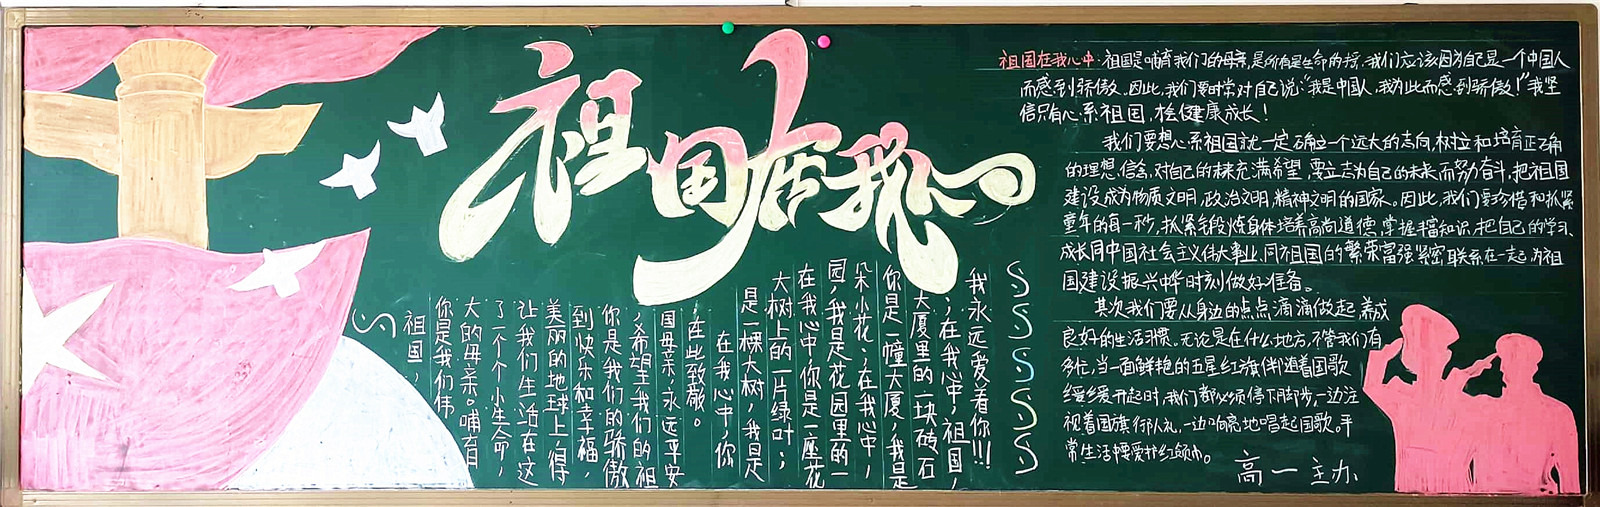 祖国在我心
祖国,
你是我们伟
大的母亲。哺育
了一个个小生命,
让我们生活在这
美丽的地球上,得
到快乐和幸福,
你是我们的骄傲
,希望我们的祖
国母亲,永远平安
在此致敬。
在我心中,你
是一棵大树,我是
大树上的一片绿叶;
在我心中你是一座花
园,我是花园里的一
朵小花;在我心中,
你是一幢大厦,我是
大厦里的一块砖石
;在我心中,祖国,
我永远爱着你!!!
祖国在我心中:祖国是哺育我们的母亲,是所有是生命的摇,我们应该因为自己是一个中国人
而感到骄傲。因此,我们要时常对自己说:“我是中国人,我为此而感到骄傲!”我坚
信只有心系祖国,健康成长!
我们要想心系祖国就一定确立一个远大的志向,树立和培育正确
的理想信念,对自己的未来充满希望,要立志为自己的未来而努力奋斗,把祖国
建设成为物质文明,政治文明,精神文明的国家。因此,我们要珍惜和抓紧
童年的每一秒,抓紧锻炼身体培养高尚道德,掌握丰富知识,把自己的学习、
成长同中国社会主义伟大事业,同祖国的繁荣富强紧密联系在一起,为祖
国建设振兴中华时刻做好准备。
其次我们要从身边的点点滴滴做起,养成
良好的生活习惯。无论是在什么地方,不管我们有
多忙,当一面鲜艳的五星红旗伴随着国歌
缓缓升起时,我们都必须停下脚步,一边注
视着国旗行队礼,一边响亮地唱起国歌。平
常生活中要爱护红领巾。
高一 主办